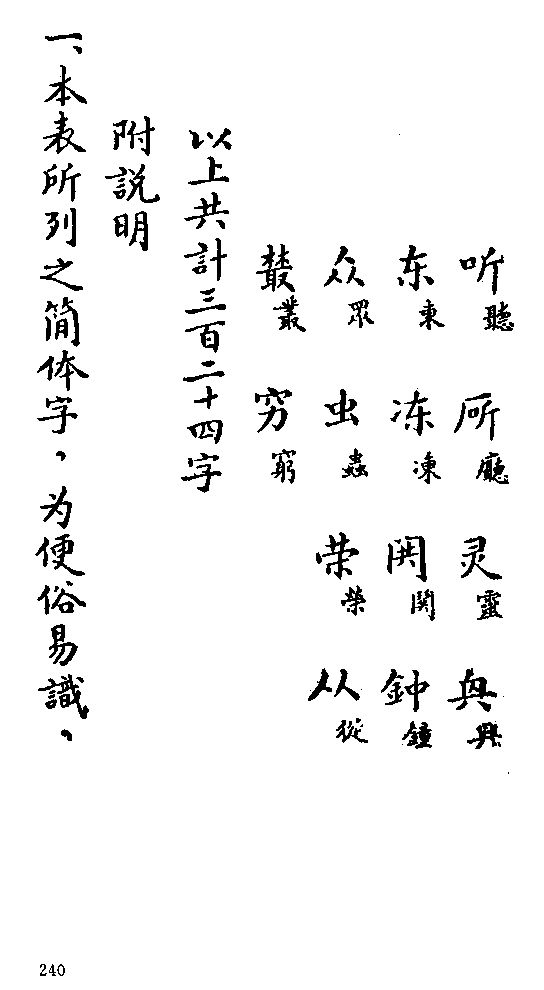 听 聽 廳 灵 靈 興
东 東 冻 凍 関 鈡 鐘
众 眾 虫 蟲 荣 榮 从 從
叢 穷 窮
以上共計三百二十四字
附説明
一、本表所列之简体字，为便俗易識，
240